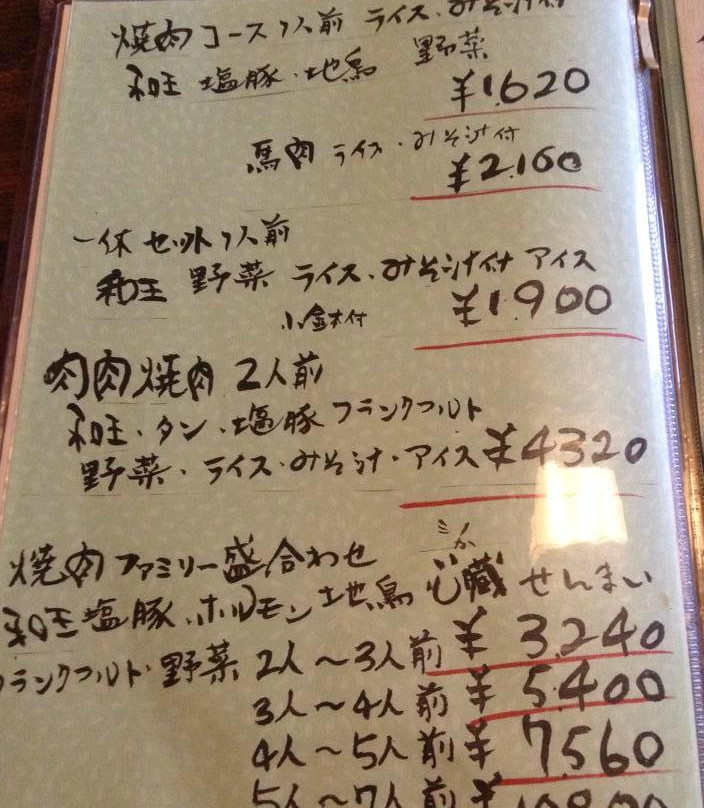 焼肉コース1人前 ライス・みそ汁付
和王 塩豚・地鳥 野菜
¥1,620
馬肉 ライス・みそ汁付
¥2,160
一休セット1人前
和王 野菜 ライス・みそ汁付 アイス
小鉢付 ¥1,900
肉肉焼肉 2人前
和王・タン・塩豚 フランクフルト
野菜・ライス・みそ汁・アイス ¥4320
焼肉ファミリー盛合わせ
和王 塩豚・ホルモン 地鳥 心臓 せんまい
フランクフルト・野菜 2人～3人前 ¥3,240
3人～4人前 ¥5,400
4人～5人前 ¥7,560
5人～7人前 ¥10,800